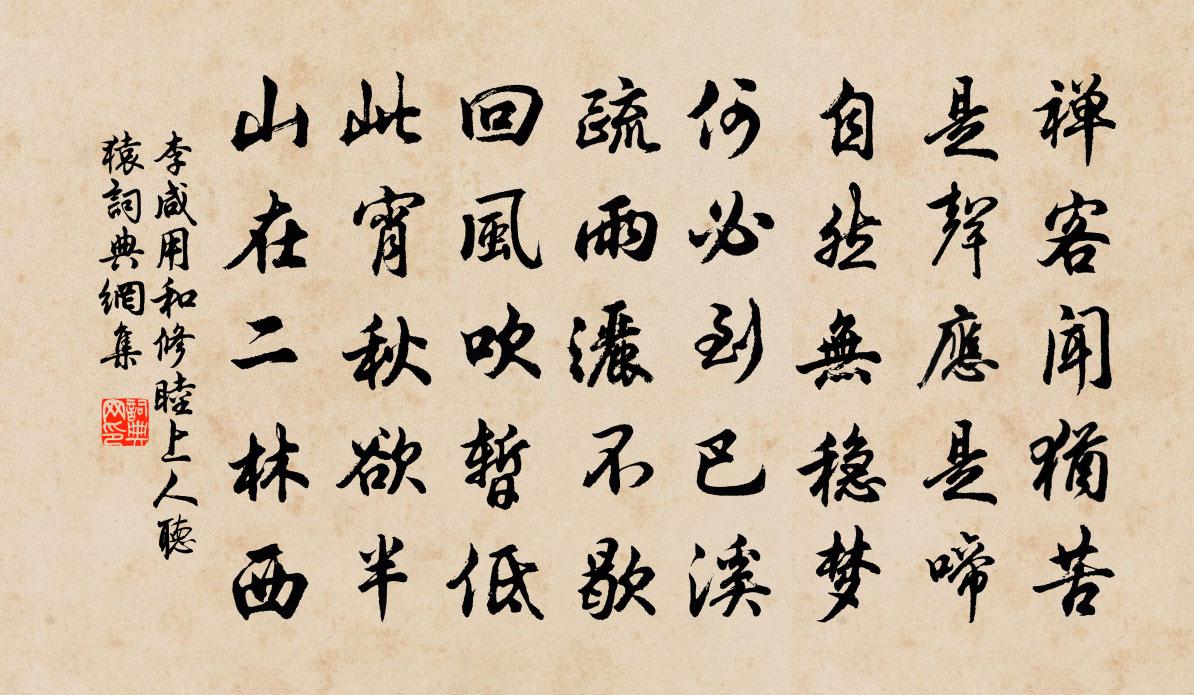 禅客闻猶苦
是聲應是啼
自然無穏梦
何必到巴溪
疏雨灑不歇
回風吹暫低
此宵秋欲半
山在二林西
李咸用和修睦上人聽
猿詞典網集
詞典
网印